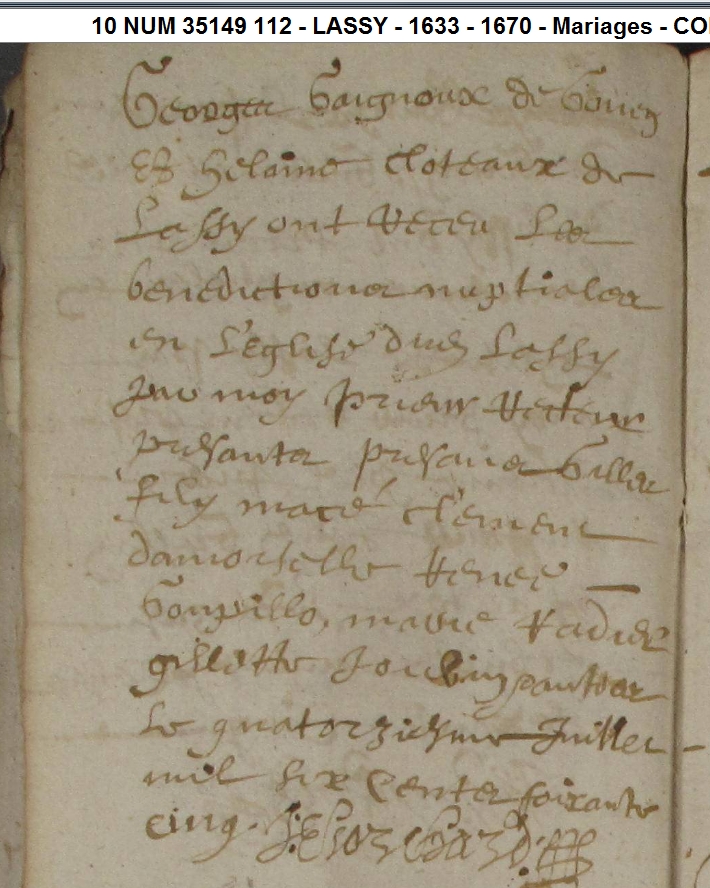 10 NUM 35149 112 - LASSY - 1633 - 1670 - Mariages - CO
Georges Gaignoux de Goven
Et Helaine Cloteaux de
Lassy ont Receu Les
benedictiones nuptiales
en L'eglise dud Lassy
par moy Prieur Recteur
presantes presance Gilles
fily macé clement
damoiselle Renee
Gouyello, marie Radier
gillette et aultres
Le quatorziesme Juillet
mil six centes soixante
cinq.